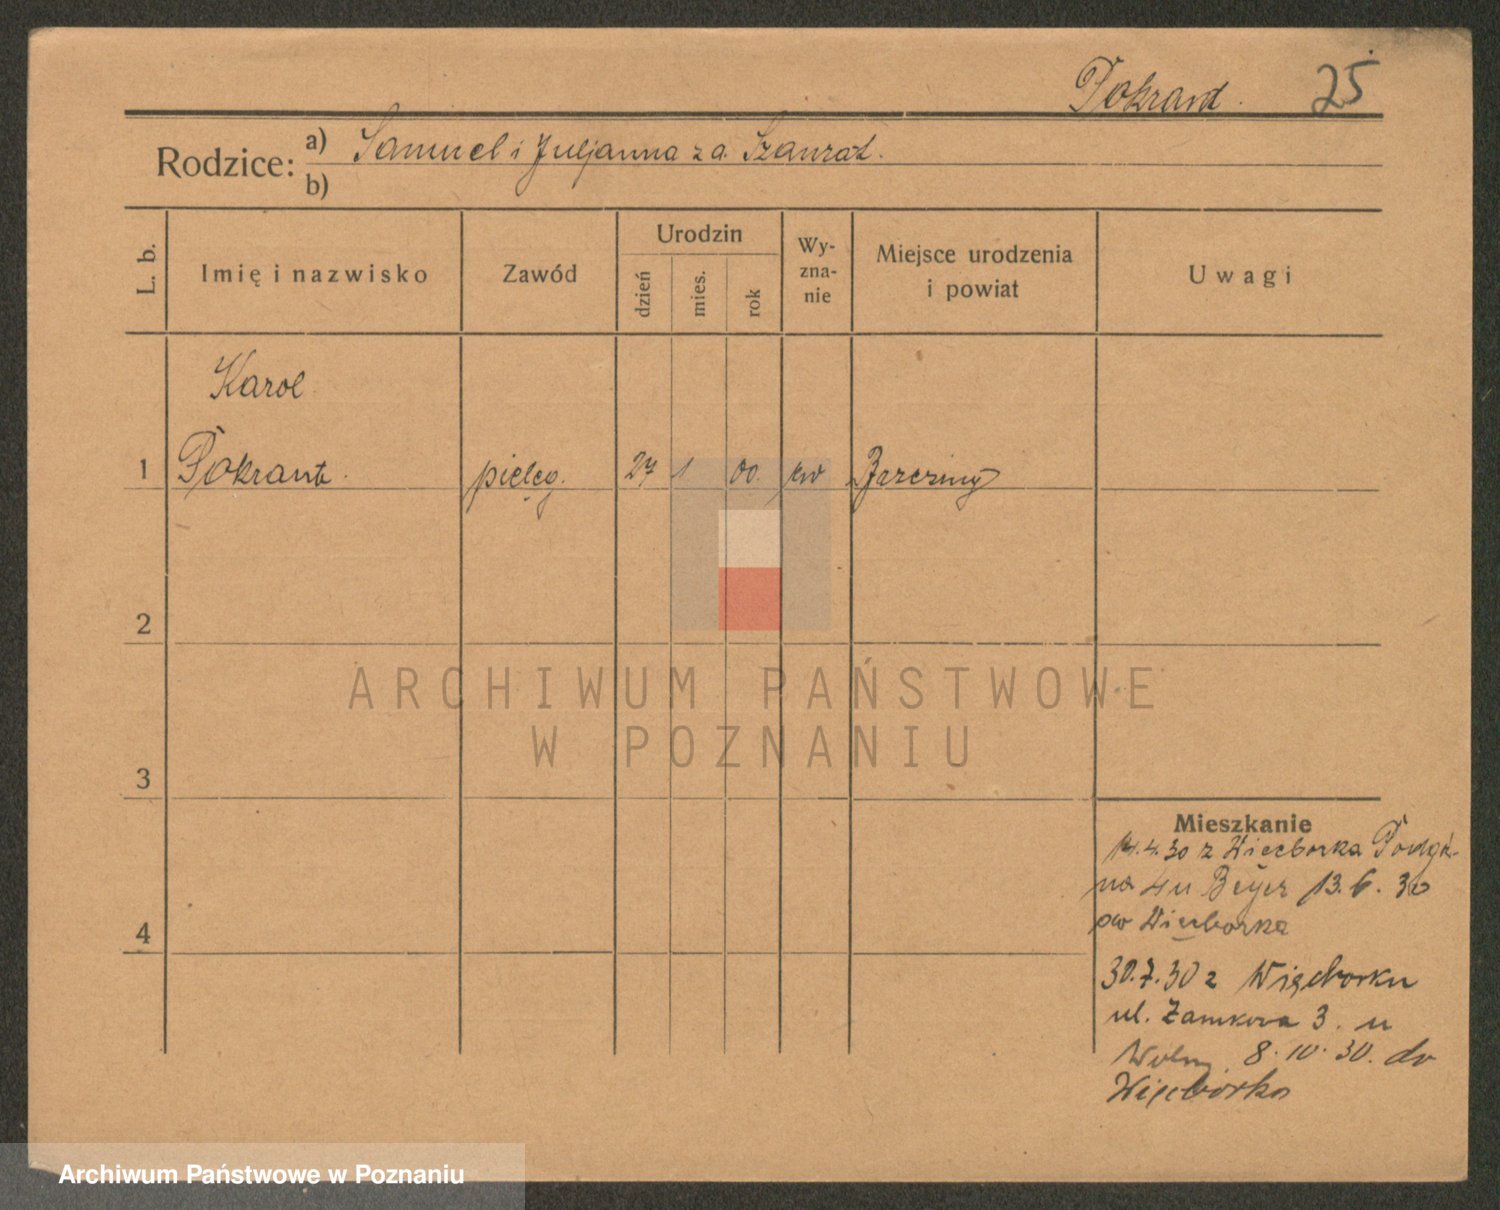 Pokrand. 25
Rodzice: a) Samuel i Juljanna z d. Szanrad.
b)
L. b. Imię i nazwisko Zawód Urodzin dzień mies. rok Wy-zna-nie Miejsce urodzenia i powiat Uwagi
Karol
1 Pokrant. pielęg. 27 1 00. ew Brzeziny
2
ARCHIWUM PAŃSTWOWE
W POZNANIU
3
Mieszkanie
14.4.30 z Więcborka Podgór-
na 4 u Beyer 13.6.30
do Więcborka
4
30.7.30 z Więcborku
ul. Zamkowa 3. u
Wolny 8.10.30. do
Więcborka
Archiwum Państwowe w Poznaniu